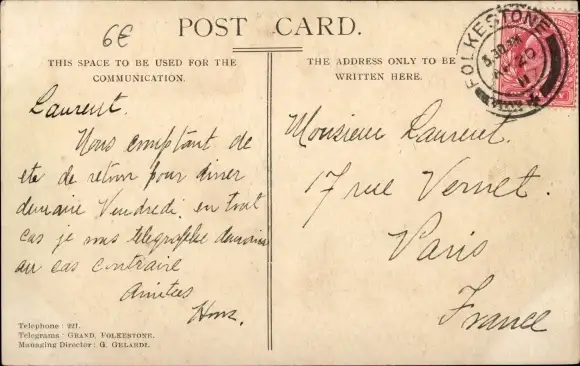 6€
POST CARD.
THIS SPACE TO BE USED FOR THE
COMMUNICATION.
THE ADDRESS ONLY TO BE
WRITTEN HERE.
FOLKESTONE
5.30 PM
20
11
Laurent.
Nous comptant de
ete de retour pour diner
demain Vendredi. en tout
cas je vous telegrafie demain
au cas contraire
Amities
Monsieur Laurent.
17 rue Vernet.
Paris
France
Telephone: 221.
Telegrams: GRAND, FOLKESTONE.
Managing Director: G. GELARDI.